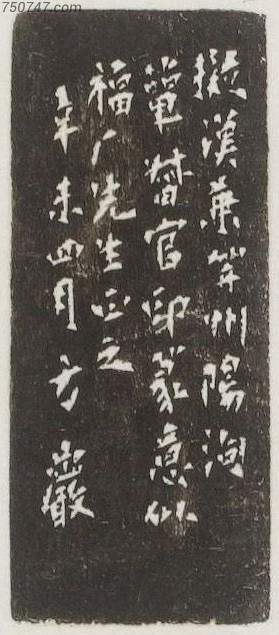 750747.com
擬漢兼州陽
督官印篆意似
福厂先生正之
辛未四月方巖